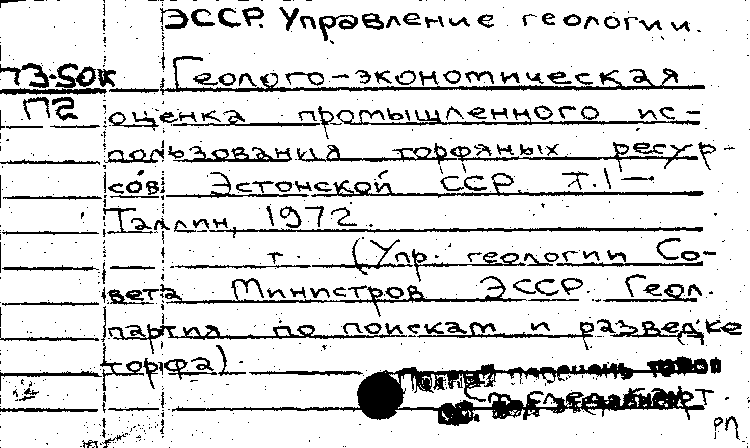 ЭССР. Управление геологии.
73.50к Геолого-экономическая
П2 оценка промышленного ис-
пользования торфяных ресур-
сов Эстонской ССР. т.1—
Таллин, 1972.
т. (Упр. геологии Со-
вета Министров ЭССР. Геол.
партия по поискам и разведке
торфа).
Полный перечень томов
см. след.
РП